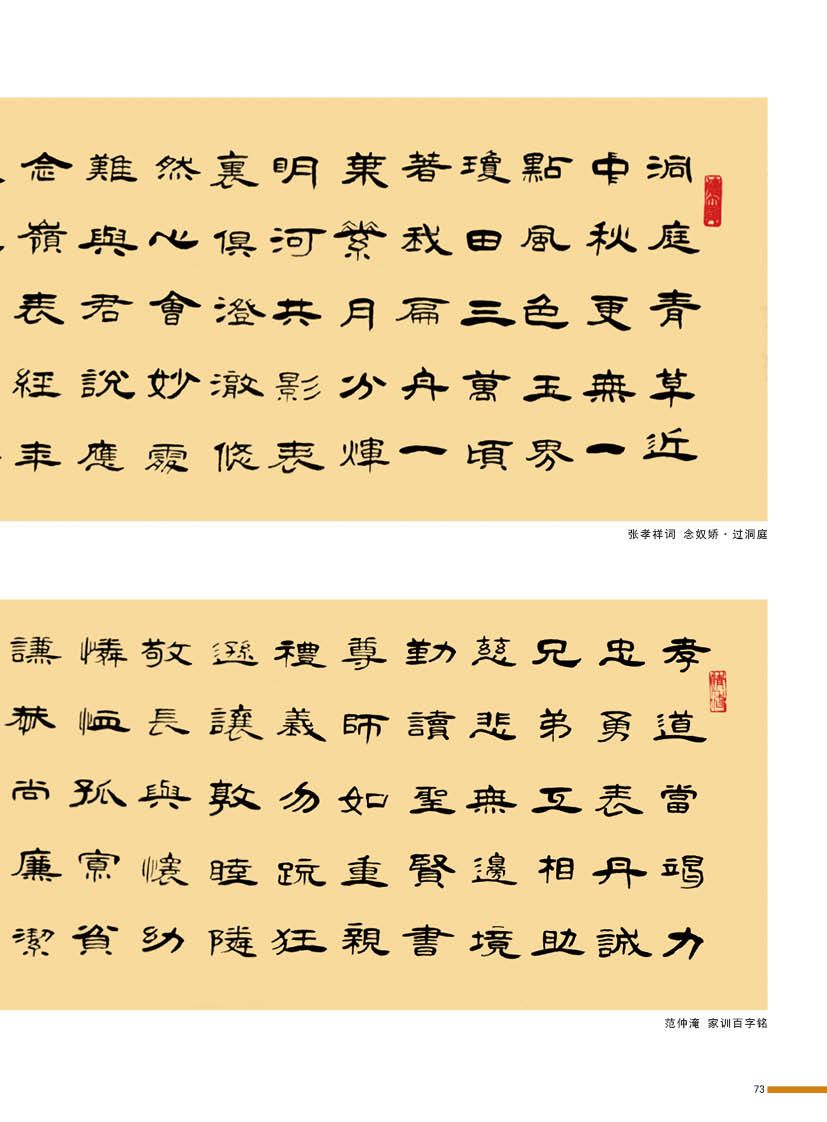 洞庭青草近
中秋更無一
點風色玉界
瓊田三萬頃
著我扁舟一
葉素月分輝
明河共影表
裏俱澄澈悠
然心會妙處
難與君說應
念嶺表經年
张孝祥词 念奴娇·过洞庭
孝道當竭力
忠勇表丹誠
兄弟互相助
慈悲無邊境
勤讀聖賢書
尊師如重親
禮義勿疏狂
遜讓敦睦隣
敬長與懷幼
憐恤孤寡貧
謙恭尚廉潔
范仲淹 家训百字铭
73